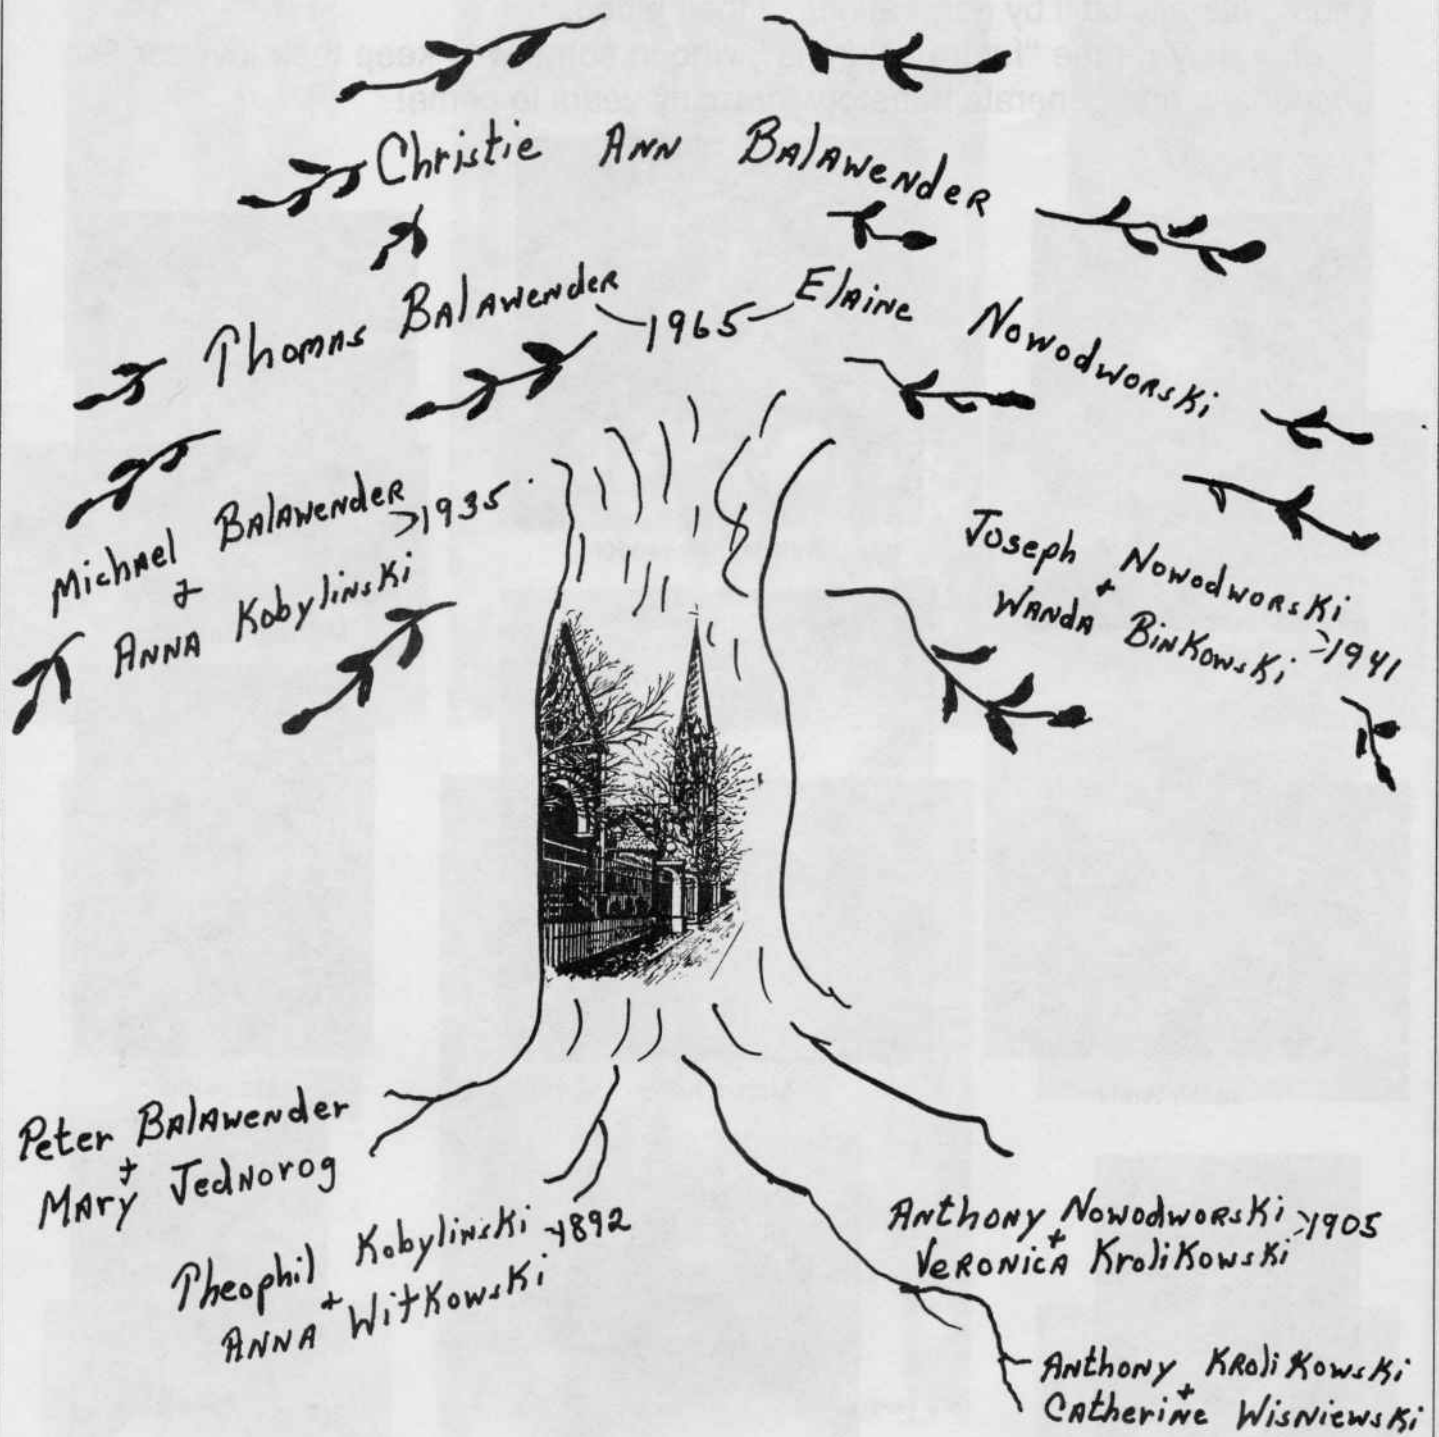 Christie Ann Balawender
Thomas Balawender 1965 Elaine Nowodworski
Michael Balawender
+
Anna Kobylinski
>1935
Joseph Nowodworski
+
Wanda Binkowski
>1941
Peter Balawender
+
Mary Jednorog
Theophil Kobylinski
+
Anna Witkowski
>1892
Anthony Nowodworski
+
Veronica Krolikowski
>1905
Anthony Krolikowski
+
Catherine Wisniewski